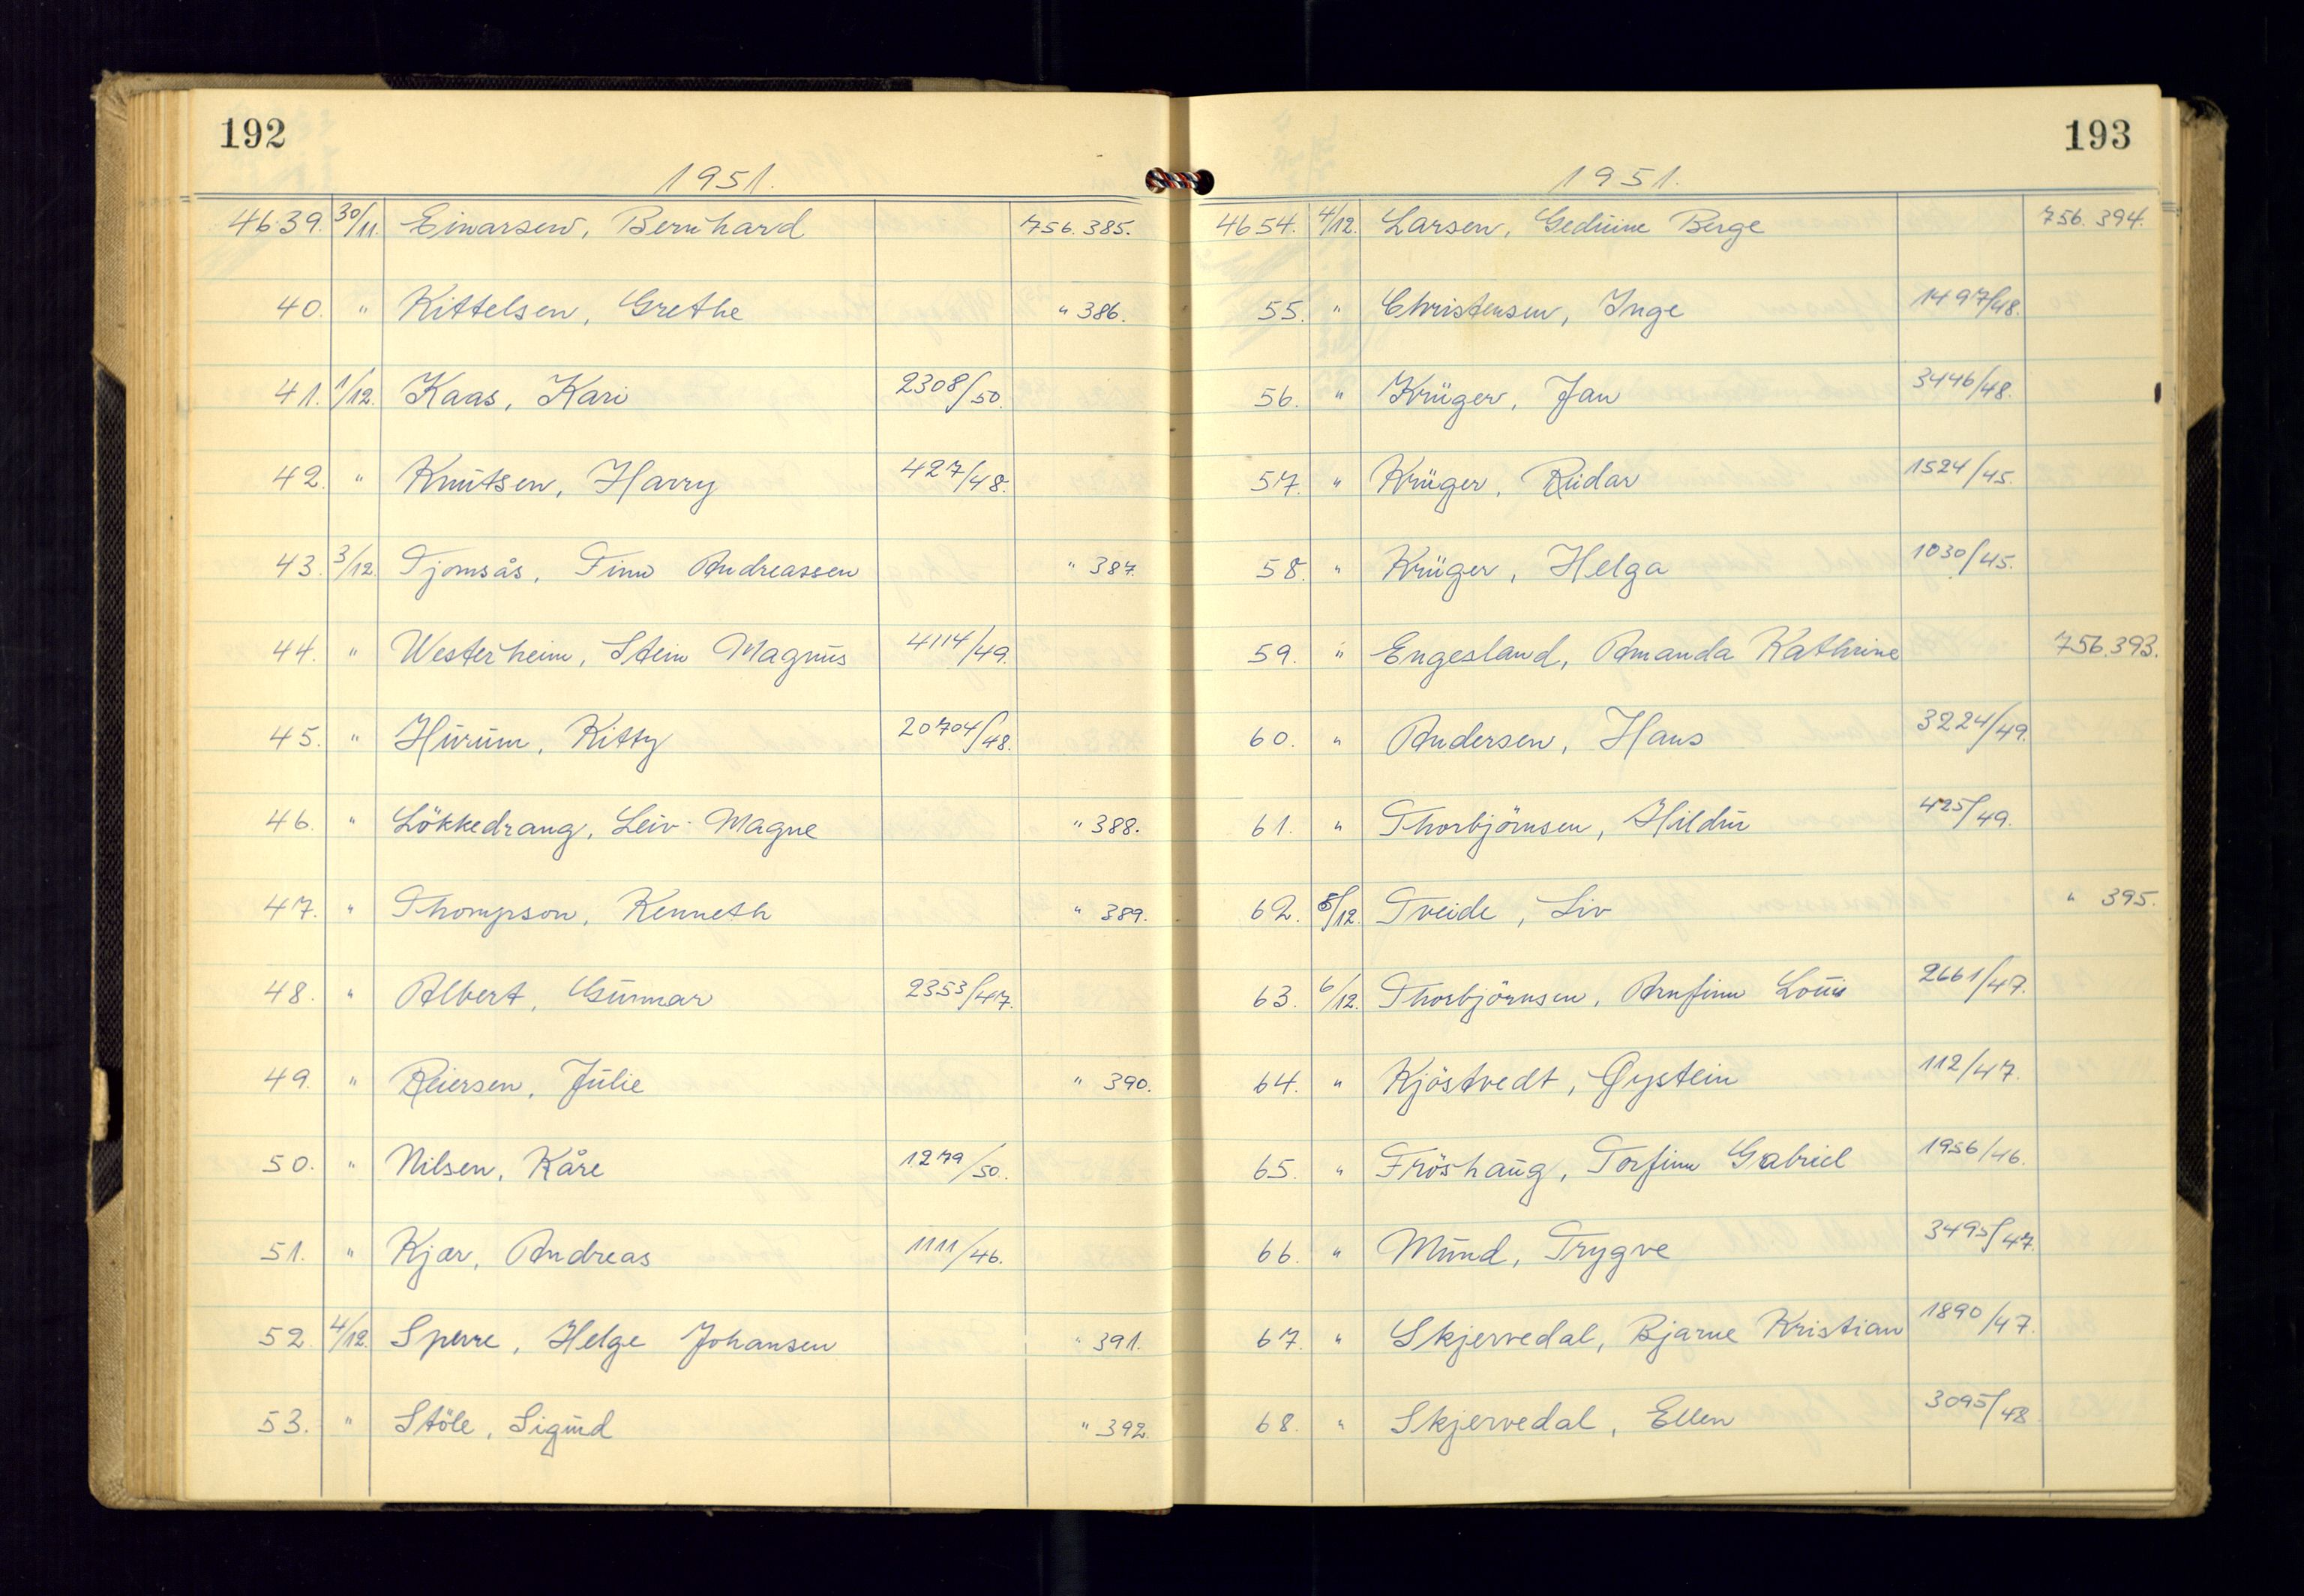 192
1951.
4639. 30/11. Einarsen, Bernhard 756.385.
40. " Kittelsen, Grethe " 386.
41. 1/12. Kaas, Kari 2308/50.
42. " Knutsen, Harry 427/48.
43. 3/12. Tjomsås, Finn Andreassen " 387.
44. " Westerheim, Stein Magnus 4114/49.
45. " Hurum, Kitty 20704/48.
46. " Lökkedrang, Leiv Magne " 388.
47. " Thompson, Kenneth " 389.
48. " Albert, Gunnar 2353/47.
49. " Reiersen, Julie " 390.
50. " Nilsen, Kåre 1279/50.
51. " Kjær, Andreas 1111/46.
52. 4/12. Sperre, Helge Johansen " 391.
53. " Stöle, Sigurd " 392.
193
1951.
4654. 4/12. Larsen, Berge 756.394.
55. " Christensen, Inge 1497/48.
56. " Krüger, Jan 3446/48.
57. " Krüger, Reidar 1524/45.
58. " Krüger, Helga 1030/45.
59. " Engesland, Amanda Kathrine 756.393.
60. " Andersen, Hans 3224/49.
61. " Thorbjörnsen, Hildur 425/49.
62. 5/12. Tveide, Liv " 395.
63. 6/12. Thorbjörnsen, Arnfinn Louis 2661/47.
64. " Kjöstvedt, Øystein 112/47.
65. " Fröshaug, Torfinn Gabriel 1956/46.
66. " Mund, Trygve 3495/47.
67. " Skjervedal, Bjarne Kristian 1890/47.
68. " Skjervedal, Ellen 3095/48